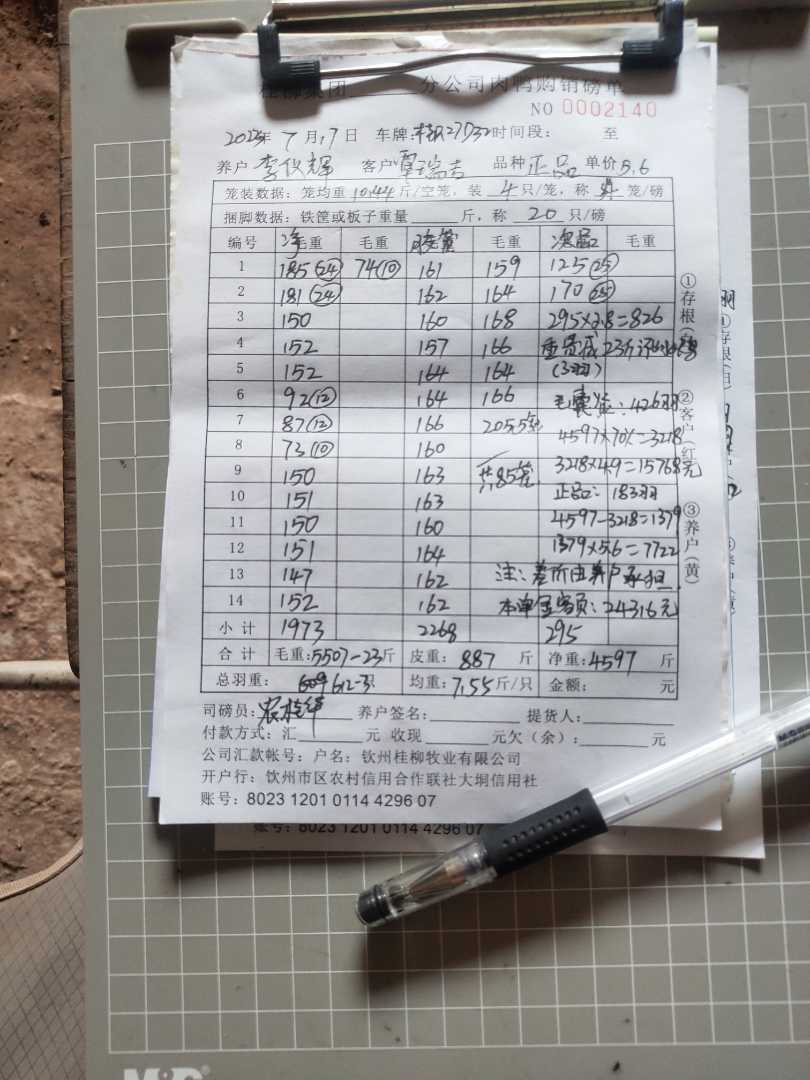 桂柳集团______分公司肉鸭购销磅单
NO 0002140
2023年 7月17日 车牌: 时间段: 至
养户 李仪辉 客户 覃瑞吉 品种 正品 单价 5.6
笼装数据: 笼均重 10.44 斤/空笼, 装 4 只/笼, 称 笼/磅
捆脚数据: 铁筐或板子重量______斤, 称 20 只/磅
编号 净毛重 毛重 毛重 次品 毛重
1 185(24) 74(10) 161 159 125(25)
2 181(24) 162 164 170(25)
3 150 160 168 295×2.8=826
4 152 157 166
5 152 164 164 (3羽)
6 92(12) 164 166 426羽
7 87(12) 166 205 4597×70%=3218
8 73(10) 160
9 150 163 共85笼 3218×4.9=15768元
10 151 163 正品: 183羽
11 150 160 4597-3218=1379
12 151 164 1379×5.6=7722
13 147 162 注: 差价由养户承担.
14 152 162 本单金额: 24316元
小计 1973 2268 295
合计 毛重: 5507-23斤 皮重: 887 斤 净重: 4597 斤
总羽重: 609 612-3只 均重: 7.55斤/只 金额: 元
司磅员: 养户签名:______ 提货人:______
付款方式: 汇______元 收现______元欠(余):______元
公司汇款帐号: 户名: 钦州桂柳牧业有限公司
开户行: 钦州市区农村信用合作联社大垌信用社
账号: 8023 1201 0114 4296 07
①存根
②客户(红)
③养户(黄)
账号: 8023 1201 0114 4296 07